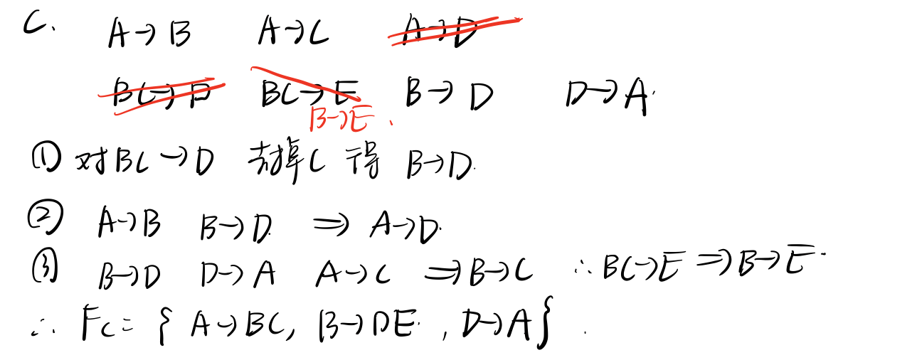 C. A→B A→C A→D
BC→D BC→E B→D D→A.
B→E.
① 对BC→D 去掉C 得 B→D.
② A→B B→D. ⇒ A→D.
③ B→D D→A A→C ⇒B→C ∴BC→E ⇒B→E.
∴ Fc= { A→BC, B→DE, D→A}.